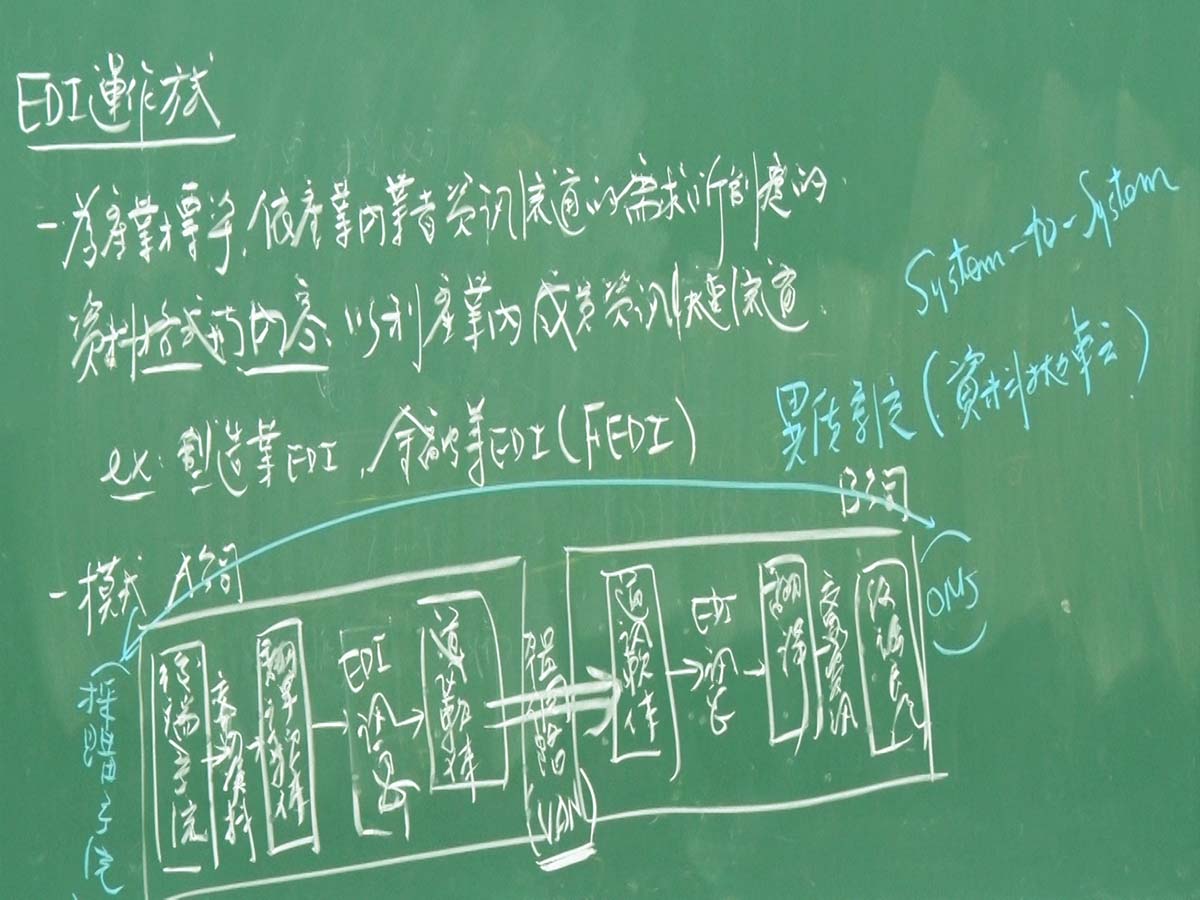 EDI運作方式
- 為產業標準,依產業內業者資訊流通的需求所制定的
資料格式與內容,以利產業內成員資訊快速流通.
ex: 製造業EDI,金融業EDI(FEDI)
System-to-System
異質系統(資料換轉)
- 模式
A公司
B公司
後端系統
交易資料
翻譯軟體
EDI訊息
通訊軟体
(VAN)
通訊軟体
EDI訊息
翻譯
交易資料
採購系統
OMS